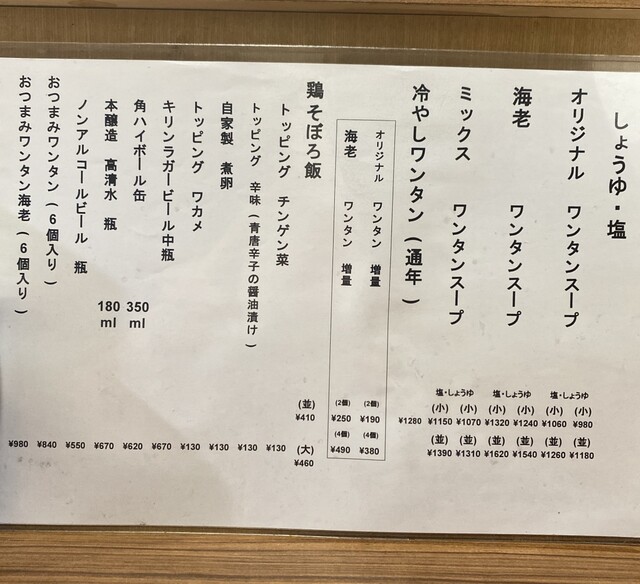 しょうゆ・塩
オリジナル ワンタンスープ
塩・しょうゆ
(小) (小)
¥1060 ¥980
(並) (並)
¥1260 ¥1180
海老 ワンタンスープ
塩・しょうゆ
(小) (小)
¥1320 ¥1240
(並) (並)
¥1620 ¥1540
ミックス ワンタンスープ
塩・しょうゆ
(小) (小)
¥1150 ¥1070
(並) (並)
¥1390 ¥1310
冷やしワンタン (通年) ¥1280
オリジナル ワンタン 増量
(2個) ¥190
(4個) ¥380
海老 ワンタン 増量
(2個) ¥250
(4個) ¥490
鶏そぼろ飯
(並) ¥410
(大) ¥460
トッピング チンゲン菜 ¥130
トッピング 辛味 (青唐辛子の醤油漬け) ¥130
自家製 煮卵 ¥130
トッピング ワカメ ¥130
キリンラガービール中瓶 ¥670
角ハイボール缶 350ml ¥620
本醸造 高清水 瓶 180ml ¥670
ノンアルコールビール 瓶 ¥550
おつまみワンタン (6個入り) ¥840
おつまみワンタン海老 (6個入り) ¥980